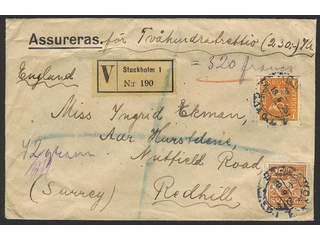 Assureras. för Tvåhundratrettio (230:-) Kr
= 320 francs
England
V Stockholm 1
Nr 190
Miss Ingrid Ekman,
Hurstdene,
Nutfield Road,
42 gram
Redhill
(Surrey)